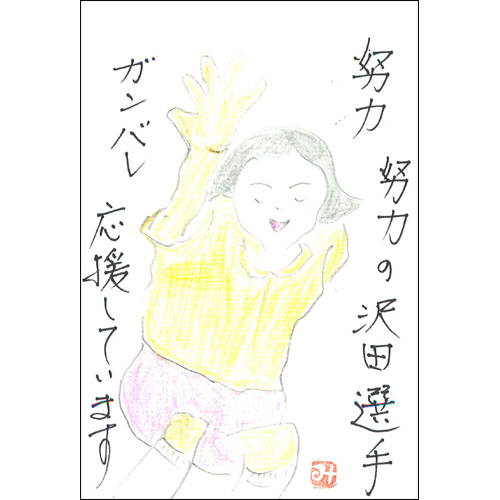 努力
努力の沢田選手
ガンバレ
応援しています
み